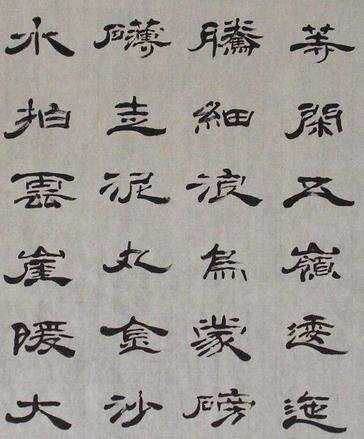 等閑五嶺逶迤
騰細浪烏蒙磅
礴走泥丸金沙
水拍雲崖暖大